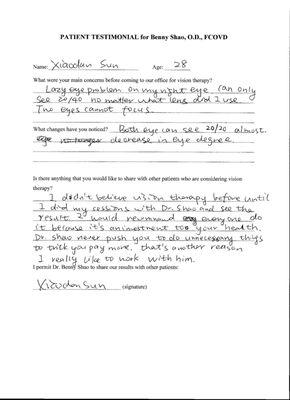 PATIENT TESTIMONIAL for Benny Shao, O.D., FCOVD
Name: Xiaodan Sun Age: 28
What were your main concerns before coming to our office for vision therapy?
Lazy eye problem on my right eye can only
see 20/40 no matter what lens did I use
Two eyes cannot focus.
What changes have you noticed? Both eye can see 20/20 almost.
eye no longer decrease in eye degree
Is there anything that you would like to share with other patients who are considering vision
therapy?
I didn't believe vision therapy before until
I did my sessions with Dr. Shao and see the
result. I would recommend everyone do
it because it's an investment to your health.
Dr. Shao never push you to do unnecessary things
to trick you pay more, that's another reason
I really like to work with him.
I permit Dr. Benny Shao to share our results with other patients:
Xiaodan Sun (signature)